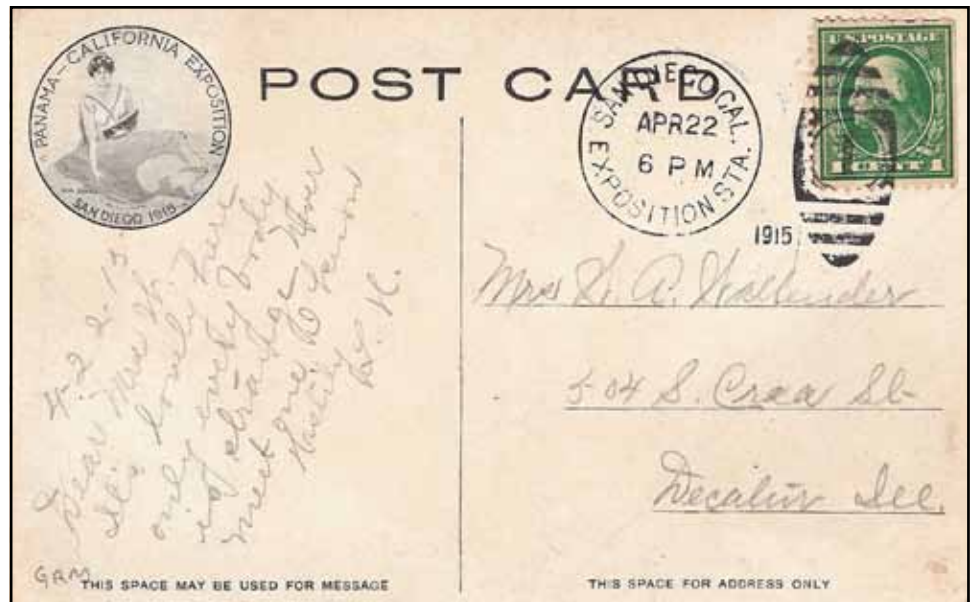 PANAMA - CALIFORNIA EXPOSITION
SAN DIEGO 1915
POST CARD
SAN DIEGO, CAL.
APR 22
6 PM
1915
EXPOSITION STA.
U.S. POSTAGE
1 CENT 1
4-22-15
Dear Mrs W.
It's lovely here
only every body
is strange. Never
meet one I know
H.
Mrs A.
504 S. Crea St-
Decatur Ill.
GRM
THIS SPACE MAY BE USED FOR MESSAGE
THIS SPACE FOR ADDRESS ONLY